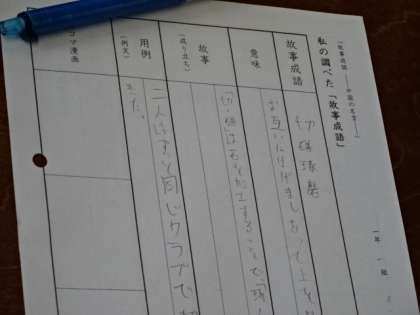 「故事成語――中国の名言――」
私の調べた「故事成語」
一年 一組
故事成語
切磋琢磨
意味
お互いにはげましあって上を
故事
(成り立ち)
「切・磋」は
加工することで「琢
用例
(例文)
二人はずっと同じクラブで
きた。
コマ漫画